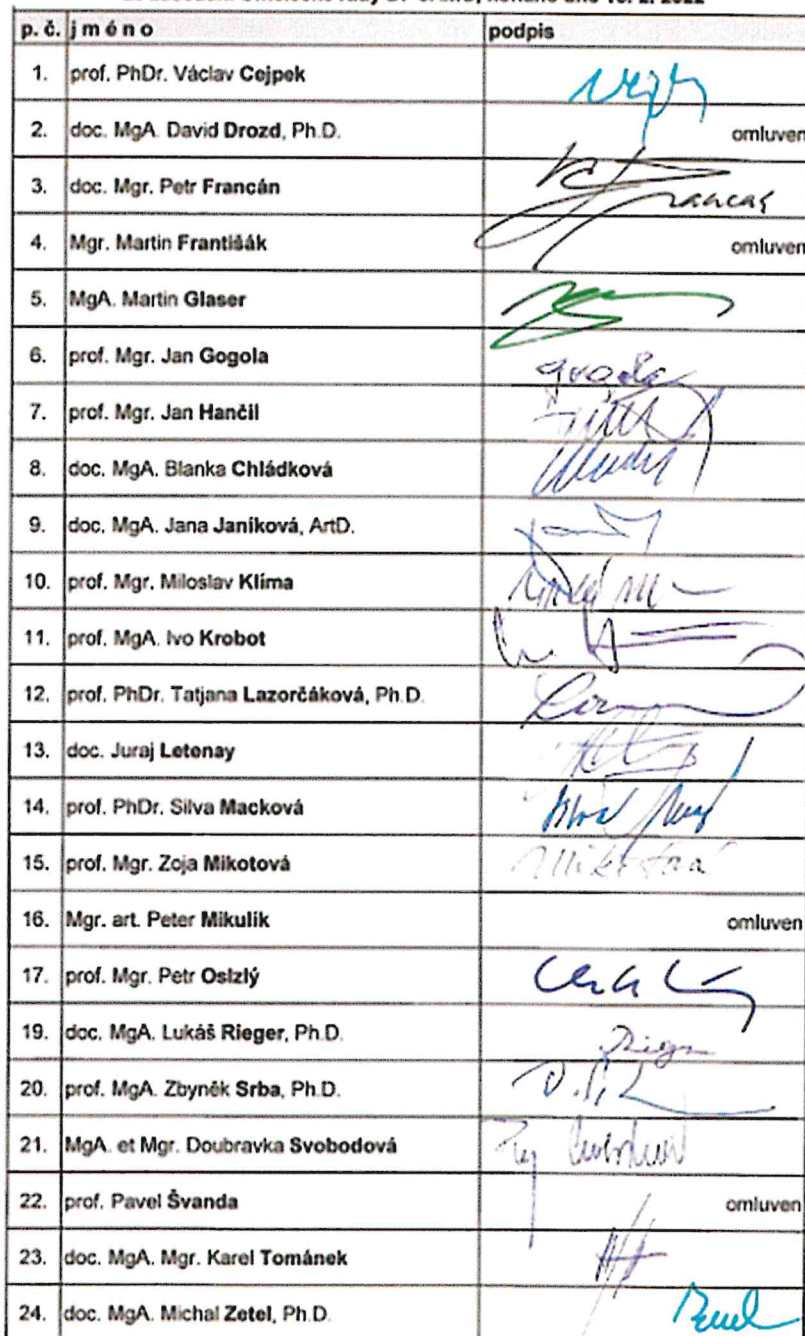 p. č. j m é n o podpis
1. prof. PhDr. Václav Cejpek
2. doc. MgA. David Drozd, Ph.D. omluven
3. doc. Mgr. Petr Francán
4. Mgr. Martin Františák omluven
5. MgA. Martin Glaser
6. prof. Mgr. Jan Gogola
7. prof. Mgr. Jan Hančil
8. doc. MgA. Blanka Chládková
9. doc. MgA. Jana Janíková, ArtD.
10. prof. Mgr. Miloslav Klíma
11. prof. MgA. Ivo Krobot
12. prof. PhDr. Tatjana Lazorčáková, Ph.D.
13. doc. Juraj Letenay
14. prof. PhDr. Silva Macková
15. prof. Mgr. Zoja Mikotová Mikotová
16. Mgr. art. Peter Mikulík omluven
17. prof. Mgr. Petr Oslzlý
19. doc. MgA. Lukáš Rieger, Ph.D.
20. prof. MgA. Zbyněk Srba, Ph.D.
21. MgA. et Mgr. Doubravka Svobodová
22. prof. Pavel Švanda omluven
23. doc. MgA. Mgr. Karel Tománek
24. doc. MgA. Michal Zetel, Ph.D.